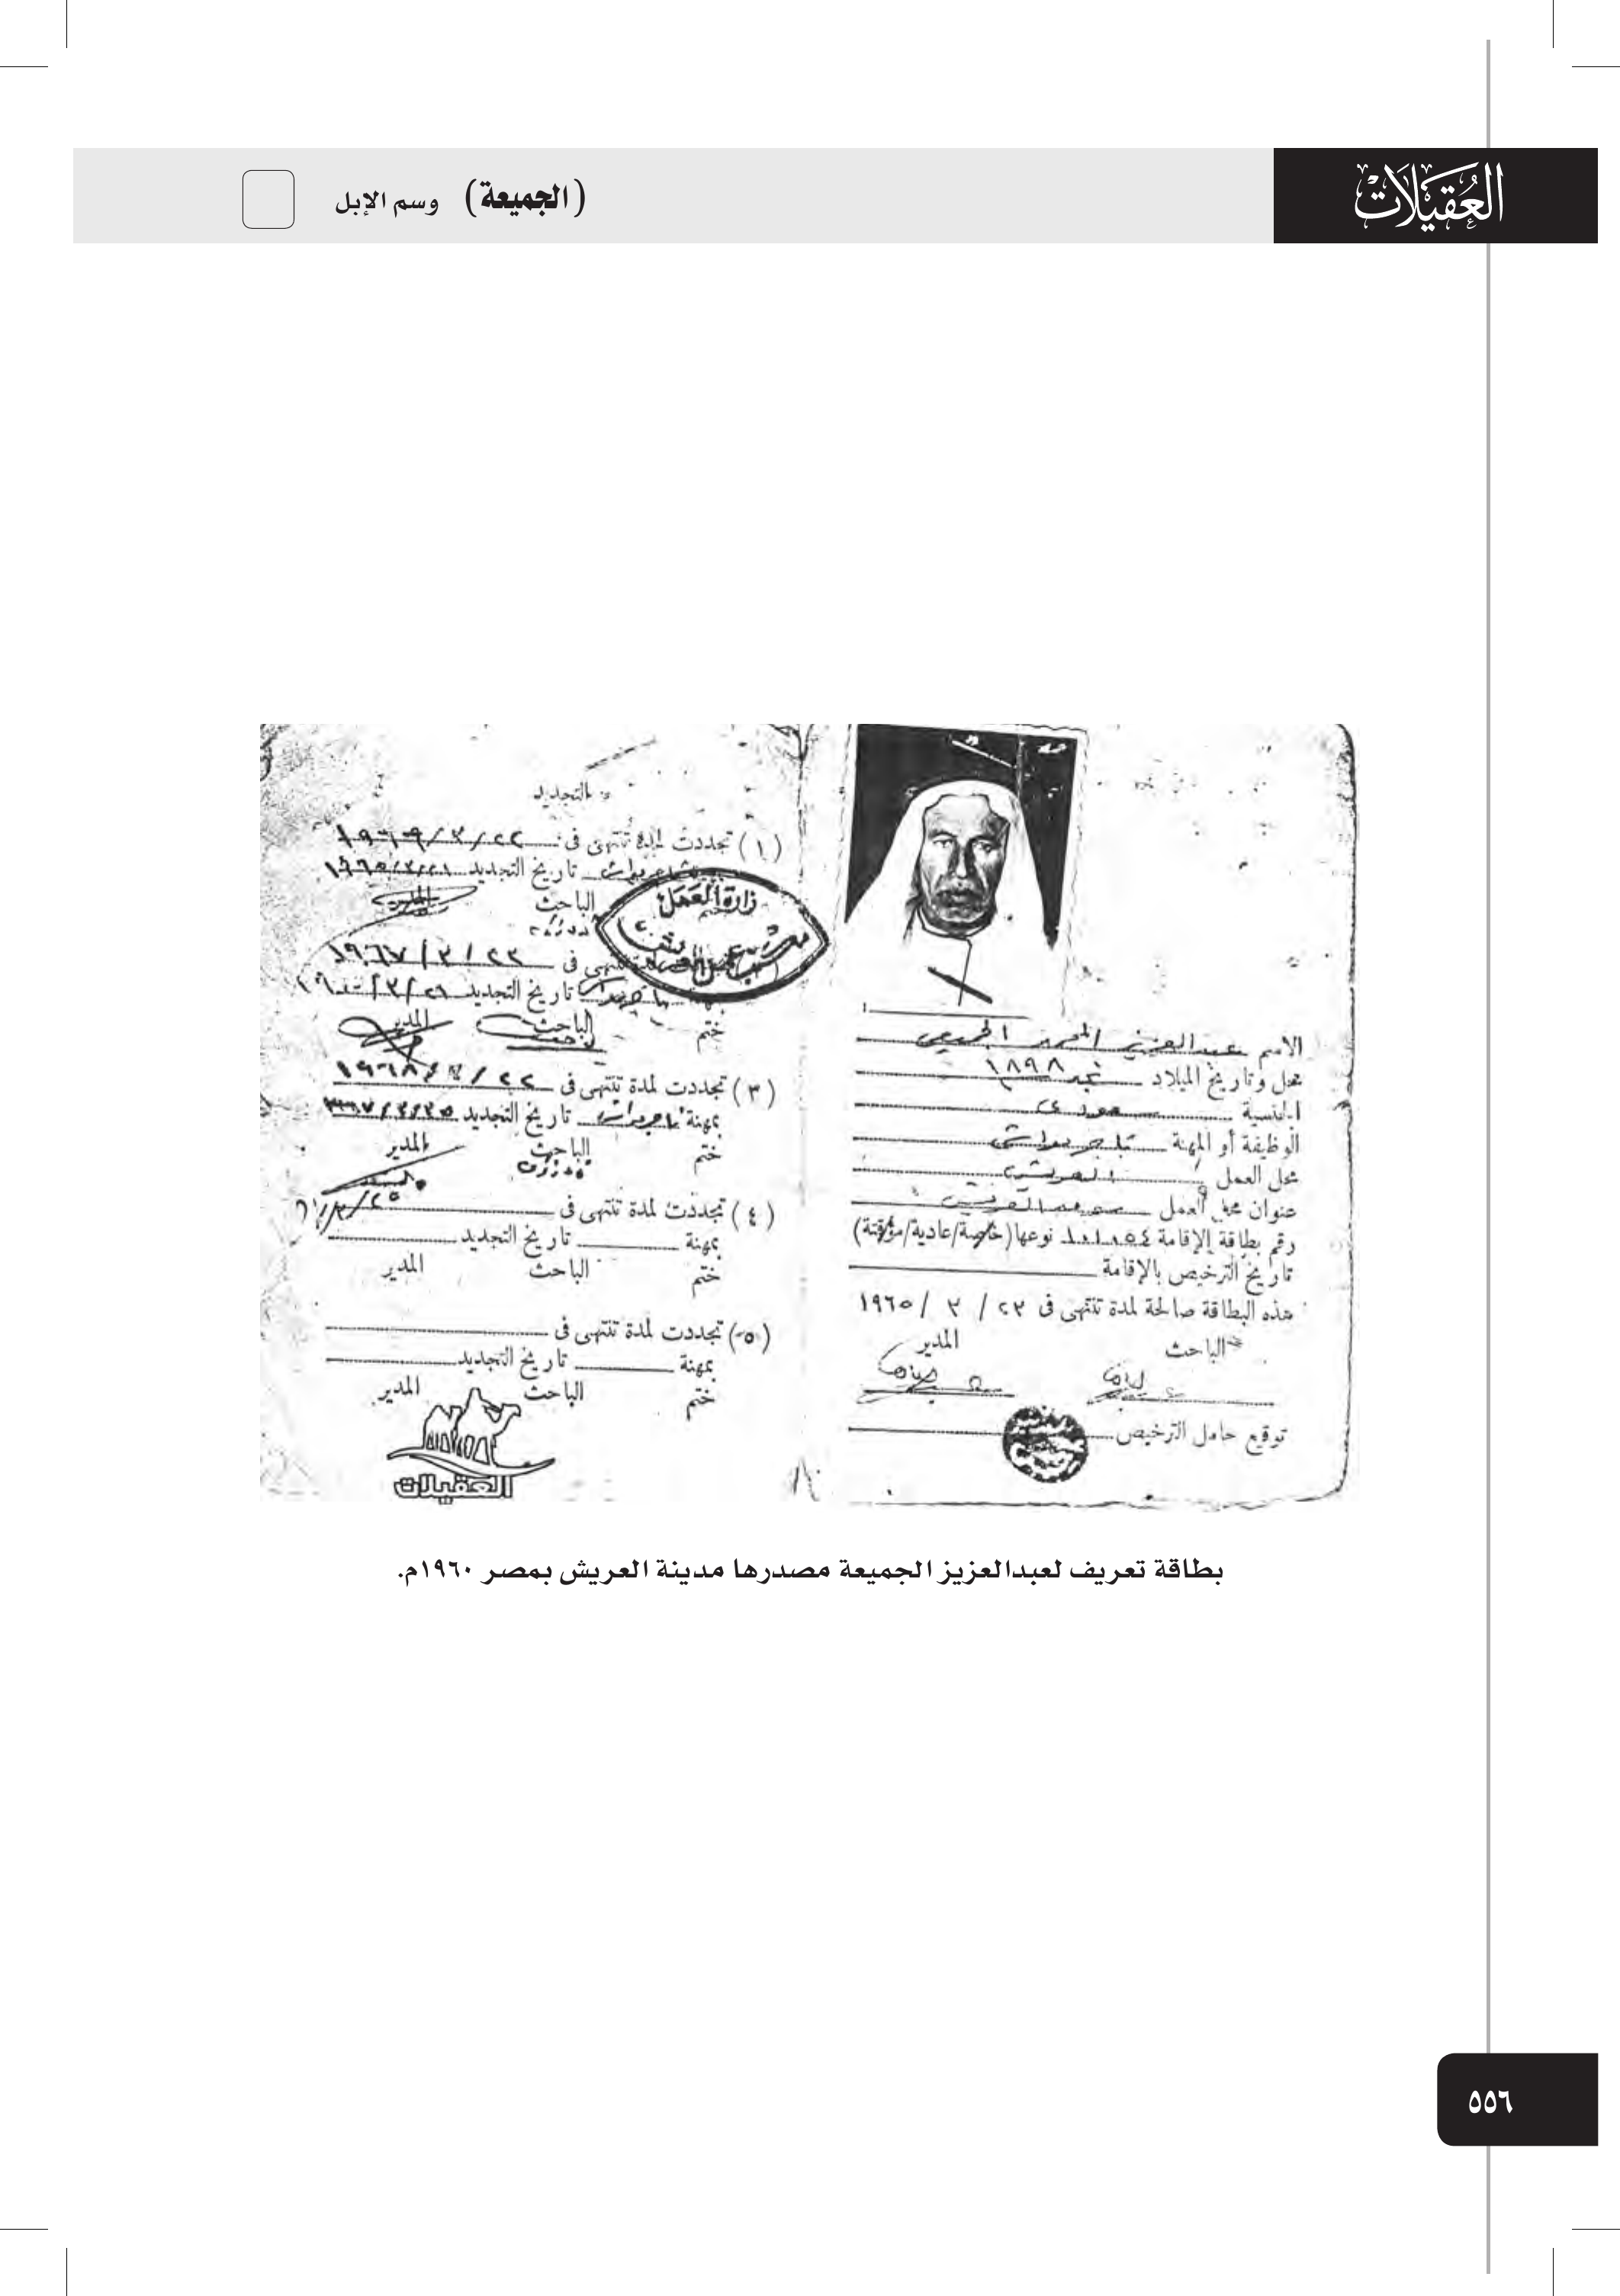 العُقَيلَات
(الجميعة) وسم الإبل
الاسم عبدالعزيز المحمد الجميعي
محل وتاريخ الميلاد نجد ١٨٩٨
الجنسية سعودي
الوظيفة أو المهنة تاجر مواشي
محل العمل العريش
عنوان محل العمل العريش
رقم بطاقة الإقامة نوعها (خاصة/عادية/مؤقتة)
تاريخ الترخيص بالإقامة
هذه البطاقة صالحة لمدة تنتهى فى ٢٣ / ٣ / ١٩٦٥
الباحث المدير
توقيع حامل الترخيص
التجديد
(١) تجددت لمدة تنتهى فى
تاريخ التجديد
وزارة العمل
الباحث المدير
تنتهى فى ٢٣ / ٣ / ١٩٦٧
تاريخ التجديد
ختم الباحث المدير
(٣) تجددت لمدة تنتهى فى ٢٢ / ٣ / ١٩٦٨
بمهنة تاريخ التجديد
ختم الباحث المدير
(٤) تجددت لمدة تنتهى فى
بمهنة تاريخ التجديد
ختم الباحث المدير
(٥) تجددت لمدة تنتهى فى
بمهنة تاريخ التجديد
ختم الباحث المدير
العقيلات
بطاقة تعريف لعبدالعزيز الجميعة مصدرها مدينة العريش بمصر ١٩٦٠م.
٥٥٦